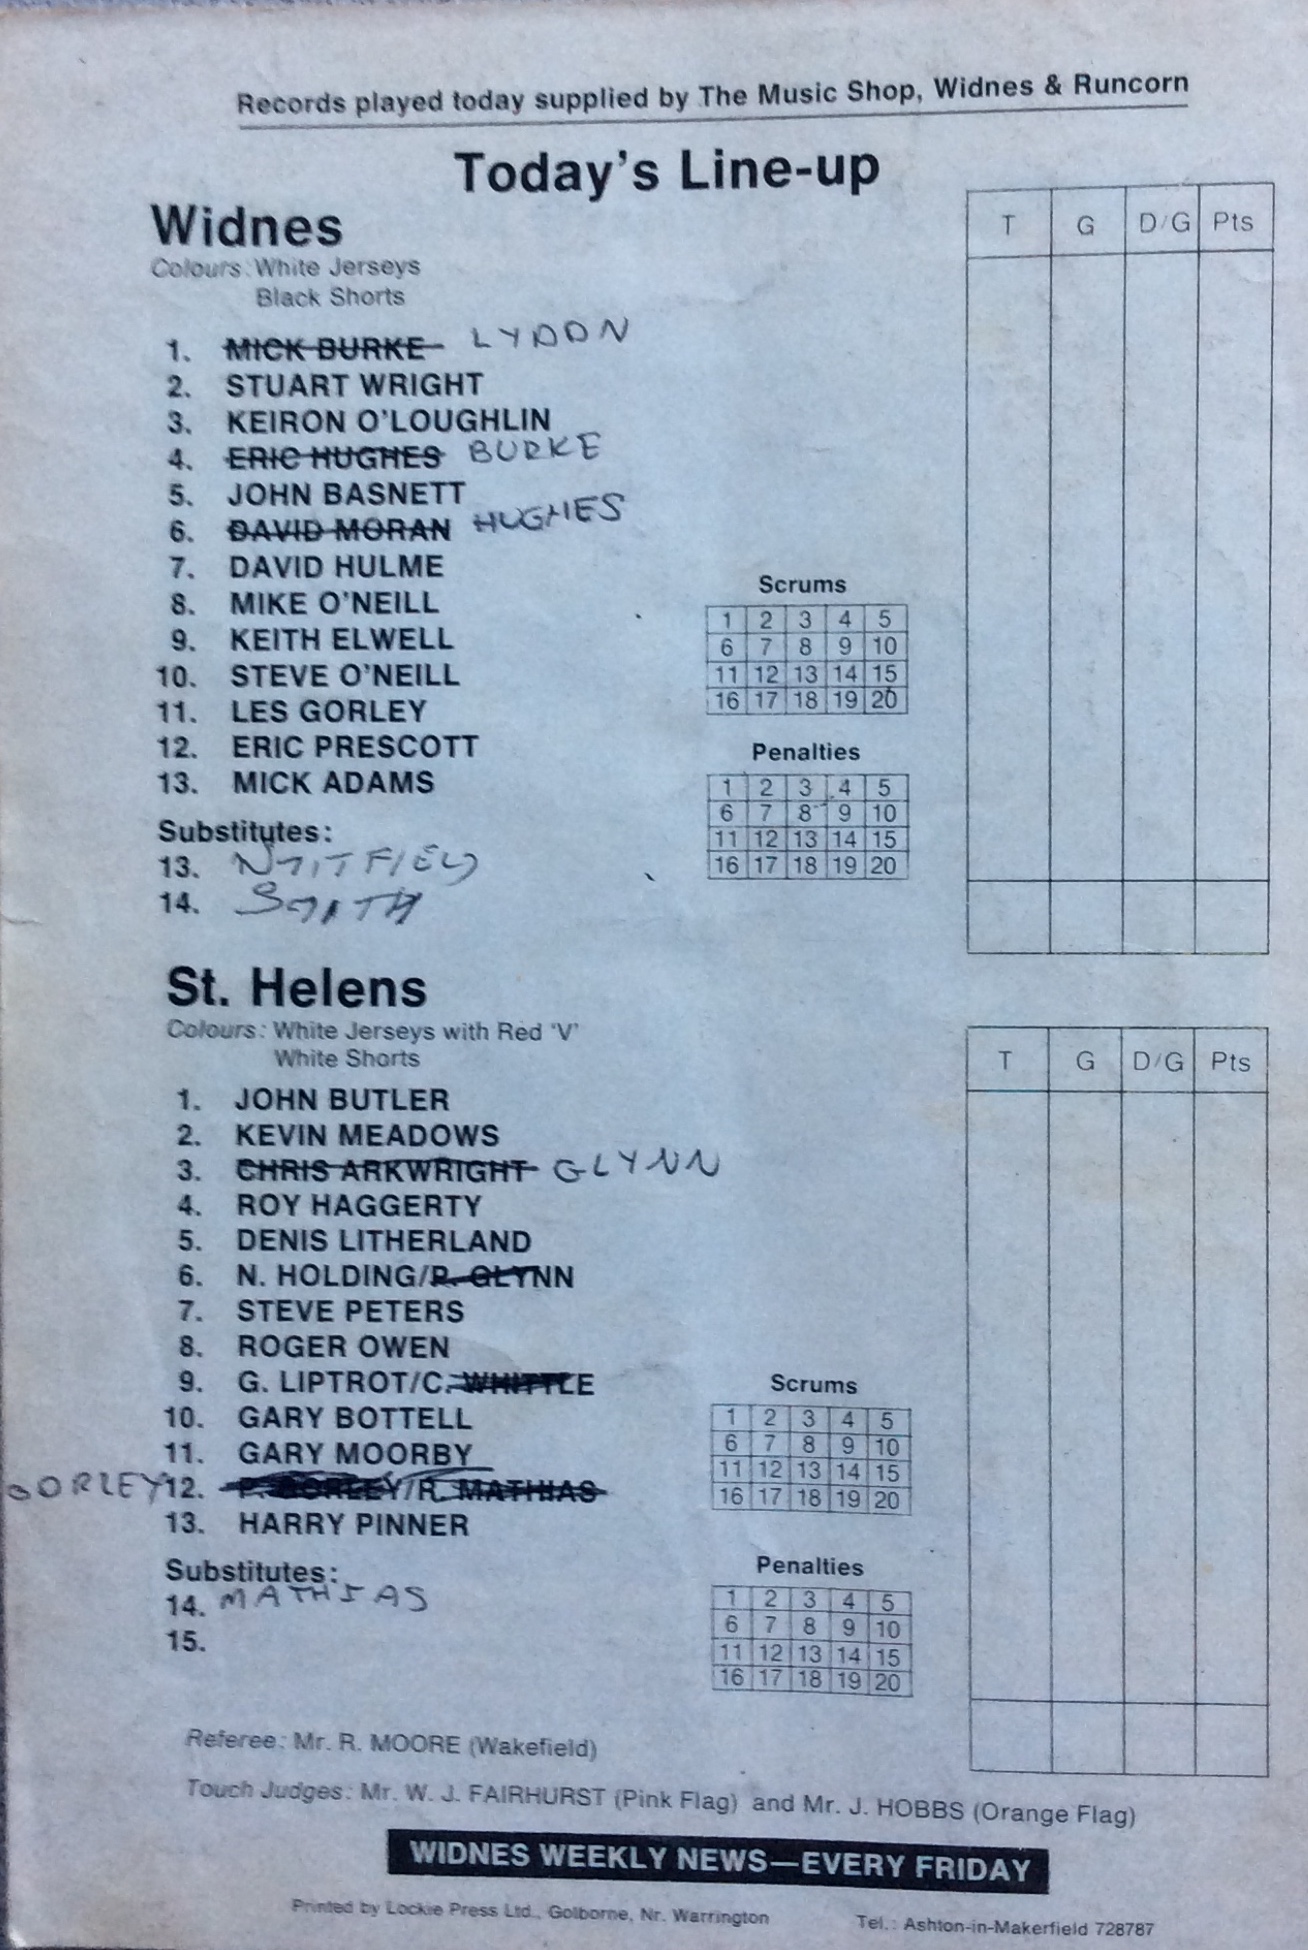 Records played today supplied by The Music Shop, Widnes & Runcorn
Today's Line-up
Widnes
Colours: White Jerseys
Black Shorts
T G D/G Pts
1. MICK BURKE LYDON
2. STUART WRIGHT
3. KEIRON O'LOUGHLIN
4. ERIC HUGHES BURKE
5. JOHN BASNETT
6. DAVID MORAN HUGHES
7. DAVID HULME
8. MIKE O'NEILL
9. KEITH ELWELL
10. STEVE O'NEILL
11. LES GORLEY
12. ERIC PRESCOTT
13. MICK ADAMS
Substitutes:
13.
14. SMITH
Scrums
1 2 3 4 5
6 7 8 9 10
11 12 13 14 15
16 17 18 19 20
Penalties
1 2 3 4 5
6 7 8 9 10
11 12 13 14 15
16 17 18 19 20
St. Helens
Colours: White Jerseys with Red 'V'
White Shorts
T G D/G Pts
1. JOHN BUTLER
2. KEVIN MEADOWS
3. CHRIS ARKWRIGHT GLYNN
4. ROY HAGGERTY
5. DENIS LITHERLAND
6. N. HOLDING/P. GLYNN
7. STEVE PETERS
8. ROGER OWEN
9. G. LIPTROT/C. WHITTLE
10. GARY BOTTELL
11. GARY MOORBY
GORLEY 12. P. GORLEY/R. MATHIAS
13. HARRY PINNER
Substitutes:
14. MATHIAS
15.
Scrums
1 2 3 4 5
6 7 8 9 10
11 12 13 14 15
16 17 18 19 20
Penalties
1 2 3 4 5
6 7 8 9 10
11 12 13 14 15
16 17 18 19 20
Referee: Mr. R. MOORE (Wakefield)
Touch Judges: Mr. W. J. FAIRHURST (Pink Flag) and Mr. J. HOBBS (Orange Flag)
WIDNES WEEKLY NEWS—EVERY FRIDAY
Printed by Lockie Press Ltd., Golborne, Nr. Warrington Tel.: Ashton-in-Makerfield 728787